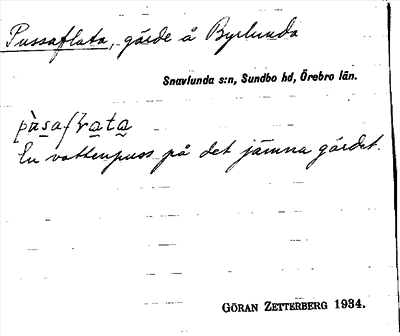 Pussaflata, gärde å Byrlunda
Snavlunda s:n, Sundbo hd, Örebro län.
En vattenpuss på det jämna gärdet.
GÖRAN ZETTERBERG 1934.